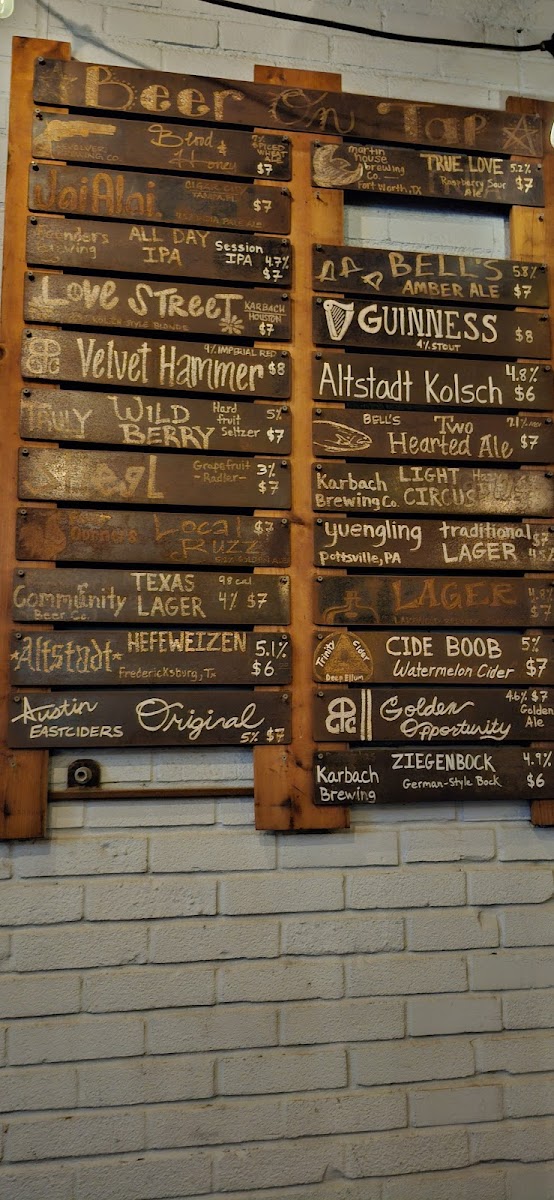 Beer On Tap
Blood &
Honey
$7
Jai Alai
$7
ALL DAY
IPA
Session
IPA 4.7%
$7
LOVE STREET
KARBACH
HOUSTON
$7
Velvet Hammer
9% IMPERIAL RED
$8
TRULY WILD
BERRY
Hard
fruit
Seltzer
5%
$7
Grapefruit
-Radler-
3%
$7
Local
Buzz
$7
Community
Beer Co.
TEXAS
LAGER
98 cal
4% $7
Altstadt
HEFEWEIZEN
Fredericksburg, Tx
5.1%
$6
Austin
EASTCIDERS
Original
5% $7
martin
house
brewing
Co.
Fort Worth, TX
TRUE LOVE
Raspberry Sour
Ale
5.2%
$7
BELL'S
AMBER ALE
5.8%
$7
GUINNESS
4% STOUT
$8
Altstadt Kolsch
4.8%
$6
BELL'S
Two
Hearted Ale
$7
Karbach
Brewing Co.
LIGHT
CIRCUS
yuengling
Pottsville, PA
traditional
LAGER
$7
4.5%
LAGER
$7
Trinity Cider
Deep Ellum
CIDE BOOB
Watermelon Cider
5%
$7
Golden
Opportunity
4.6% $7
Golden
Ale
Karbach
Brewing
ZIEGENBOCK
German-Style Bock
4.9%
$6